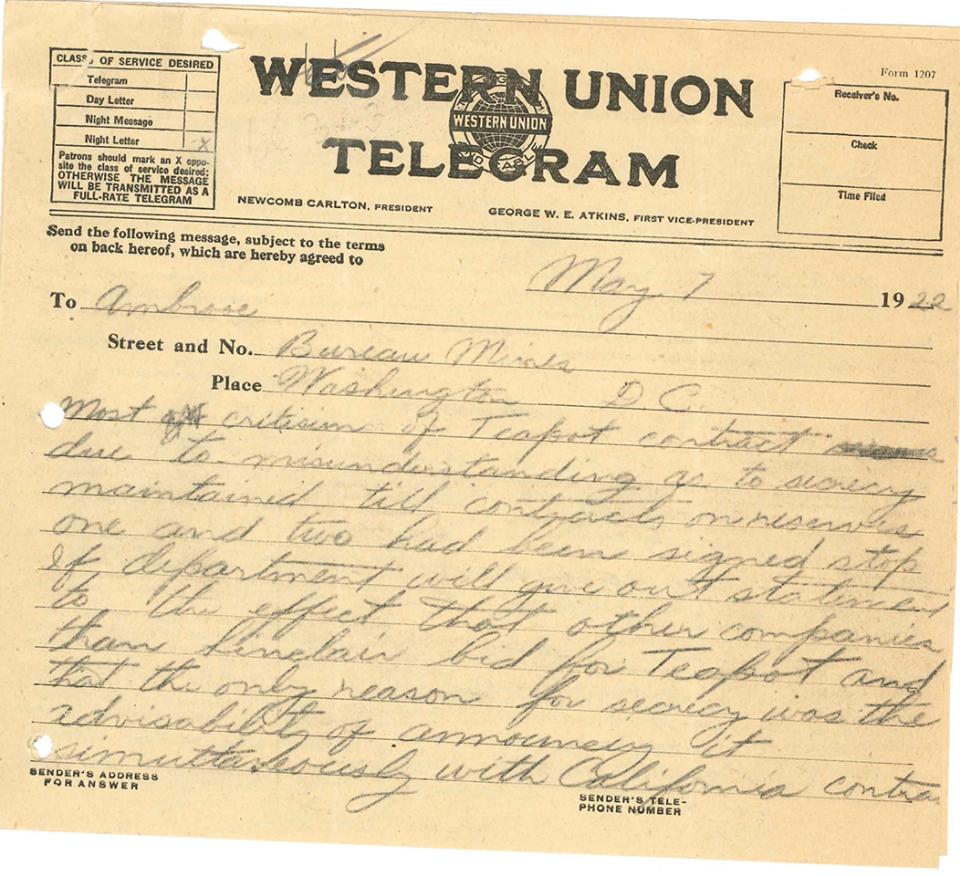 Form 1207
CLASS OF SERVICE DESIRED
Telegram
Day Letter
Night Message
Night Letter X
Patrons should mark an X oppo-
site the class of service desired;
OTHERWISE THE MESSAGE
WILL BE TRANSMITTED AS A
FULL-RATE TELEGRAM
WESTERN UNION
WESTERN UNION
TELEGRAM
NEWCOMB CARLTON, PRESIDENT
GEORGE W. E. ATKINS, FIRST VICE-PRESIDENT
Receiver's No.
Check
Time Filed
Send the following message, subject to the terms
on back hereof, which are hereby agreed to
May 7 1922
To Ambrose
Street and No. Bureau Mines
Place Washington D C.
Most criticism of Teapot contract
due to misunderstanding as to secrecy
maintained till contracts on reserves
one and two had been signed stop
If department will give out statement
to the effect that other companies
than Sinclair bid for Teapot and
that the only reason for secrecy was the
advisability of it
simultaneously with California contra
SENDER'S ADDRESS
FOR ANSWER
SENDER'S TELE-
PHONE NUMBER